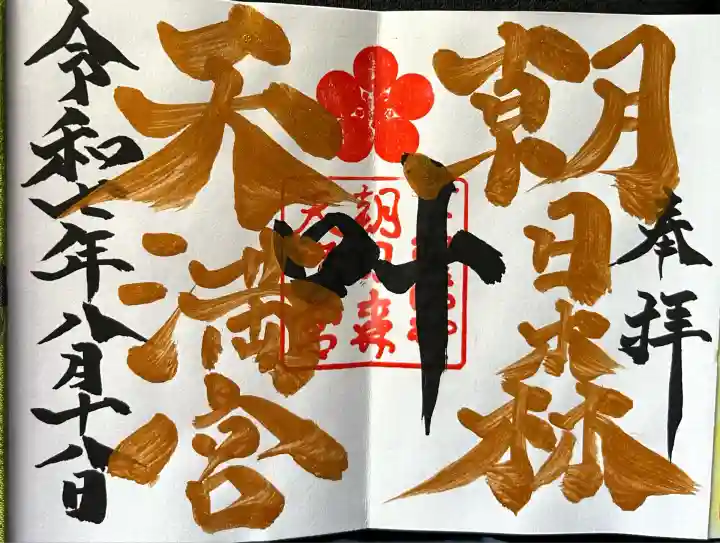 奉拝
朝日森
天満宮
叶
朝日森
令和七年八月十八日